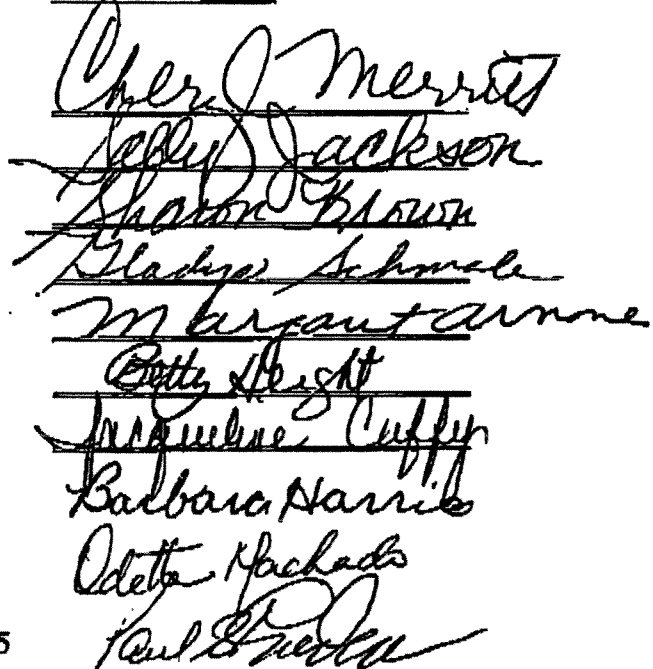 Cheri Merritt
Jackson
Sharon Brown
Gladys Schmale
Margaret Arnone
Betty Height
Jacqueline Cuffy
Barbara Harris
Odette Machado
Paul
5